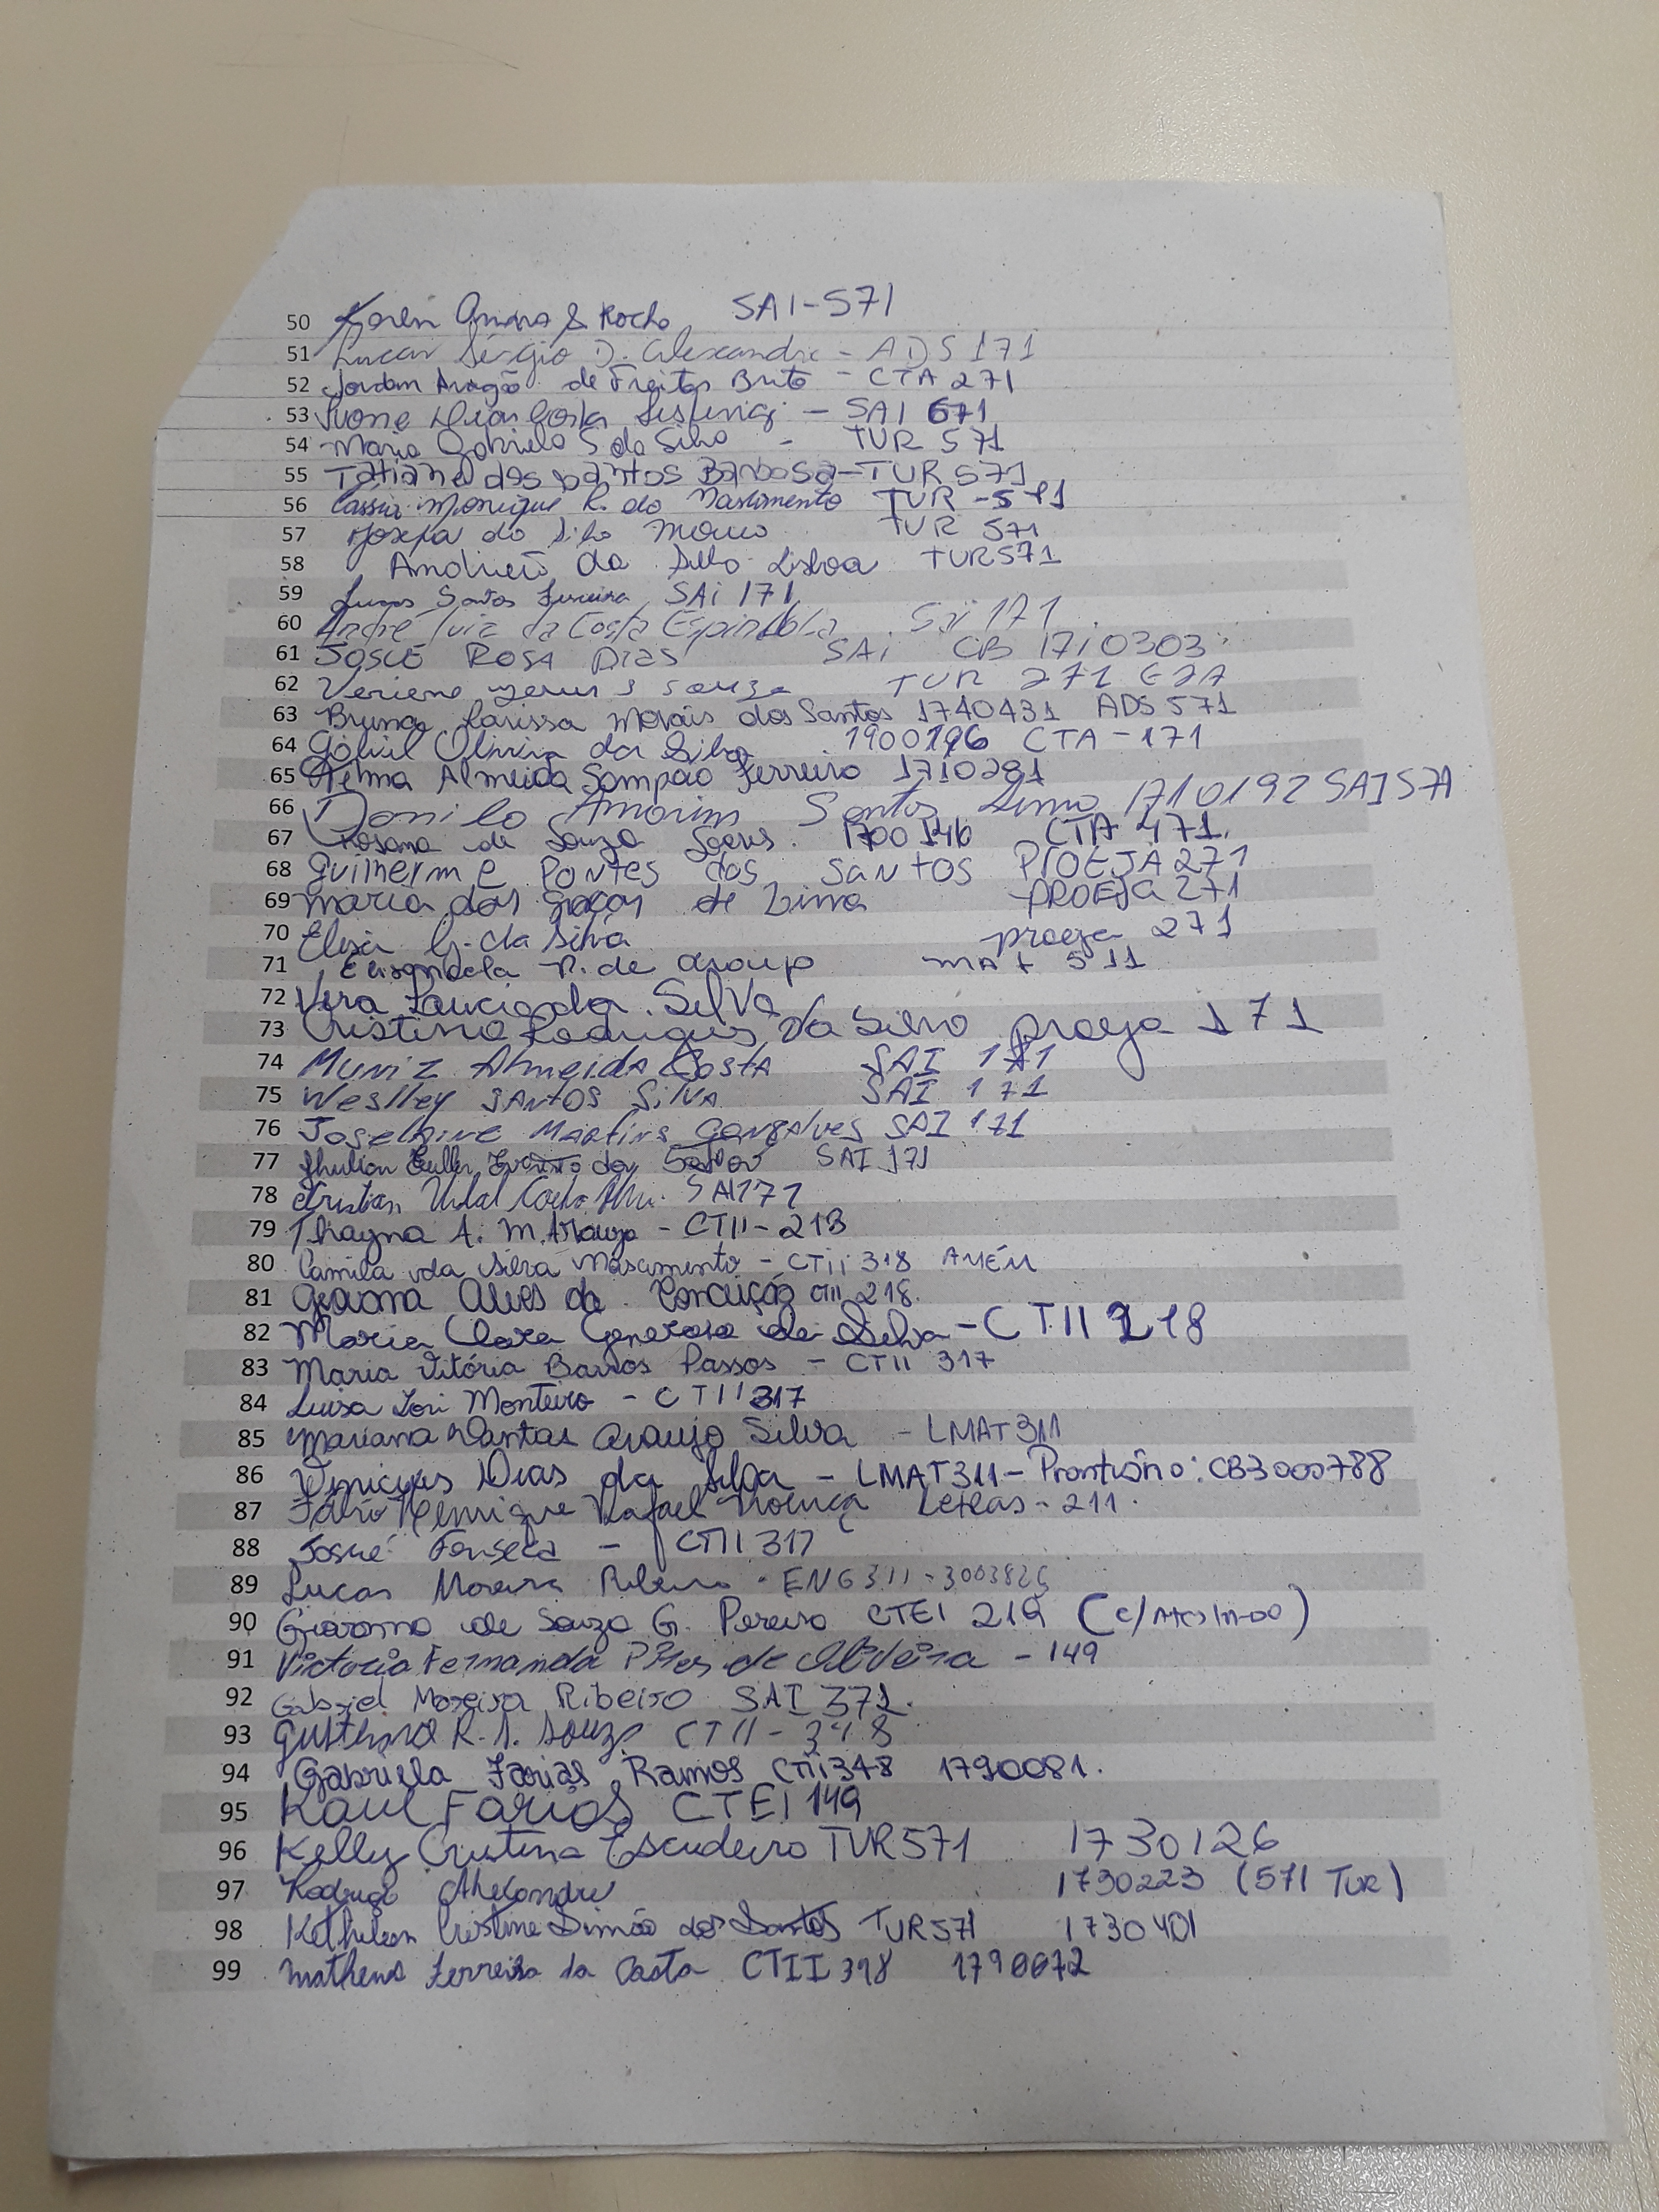 50 Karen S Rocha SAI-571
51 Lucas Sérgio D. Alexandre - ADS 171
52 Jordan Aragão de Freitas Brito - CTA 271
53 Ivone Dias Costa - SAI 671
54 Maria Gabriela S da Silva - TUR 571
55 Tatiane dos Santos Barbosa - TUR 571
56 Cássia Monique R. do Nascimento TUR - 571
57 Josefa da Silva TUR 571
58 da Silva Lisboa TUR 571
59 Lucas Santos Ferreira SAi 171
60 André Luiz da Costa Espindola Sai 171
61 Josué ROSA DIAS SAi CB 1710303
62 Souza TUR 271
63 Bruna Larissa Morais dos Santos 1740431 ADS 571
64 Gabriel Oliveira da Silva 1900196 CTA - 171
65 Telma Almeida Sampaio Ferreira 1710281
66 Danilo Amorim Santos Lima 1710192 SAI 571
67 Rosana de Souza Soares. 1700146 CTA 471.
68 Guilherme Pontes dos Santos PIOEJA 271
69 Maria das Graças de Lima PROEJA 271
70 G. da Silva proeja 271
71 R. de Araujo MAT 511
72 Vera Lucia da Silva
73 Cristina Rodrigues da Silva proeja 171
74 Muniz Almeida Costa SAI 171
75 Weslley SANTOS SilVA SAI 171
76 Martins Gonçalves SAI 171
77 SAI 171
78 Cristian Vidal SAI 171
79 Thayna A. M. Araujo - CTII - 218
80 Camila da Silva Nascimento - CTII 318 AMÉM
81 Geovana Alves da Conceição CTII 218.
82 Maria Clara Generoso da Silva - CTII 218
83 Maria Vitória Barros Passos - CTII 317
84 Luisa Iori Monteiro - CTII 317
85 Mariana Dantas Araujo Silva - LMAT 311
86 Vinicius Dias da Silva - LMAT 311 - Prontuário: CB3000788
87 Fábio Henrique Rafael Letras - 211.
88 Josué Fonseca - CTII 317
89 Lucas Moreira Ribeiro - ENG 311 -
90 Giovanna de Souza G. Pereira CTEI 219
91 Victoria Fernanda Pires de Oliveira - 149
92 Gabriel Moreira Ribeiro SAI 371.
93 R. S. Souza CTII - 318
94 Gabriela Farias Ramos CTII 348 1790081.
95 Raul Farias CTEI 149
96 Kelly Cristina Escudeiro TUR 571 1730126
97 Rodrigo Alexandre 1730223 (571 TUR)
98 Kethelen Cristine Simão dos Santos TUR 571 1730401
99 Matheus Ferreira da Costa CTII 318 1790072